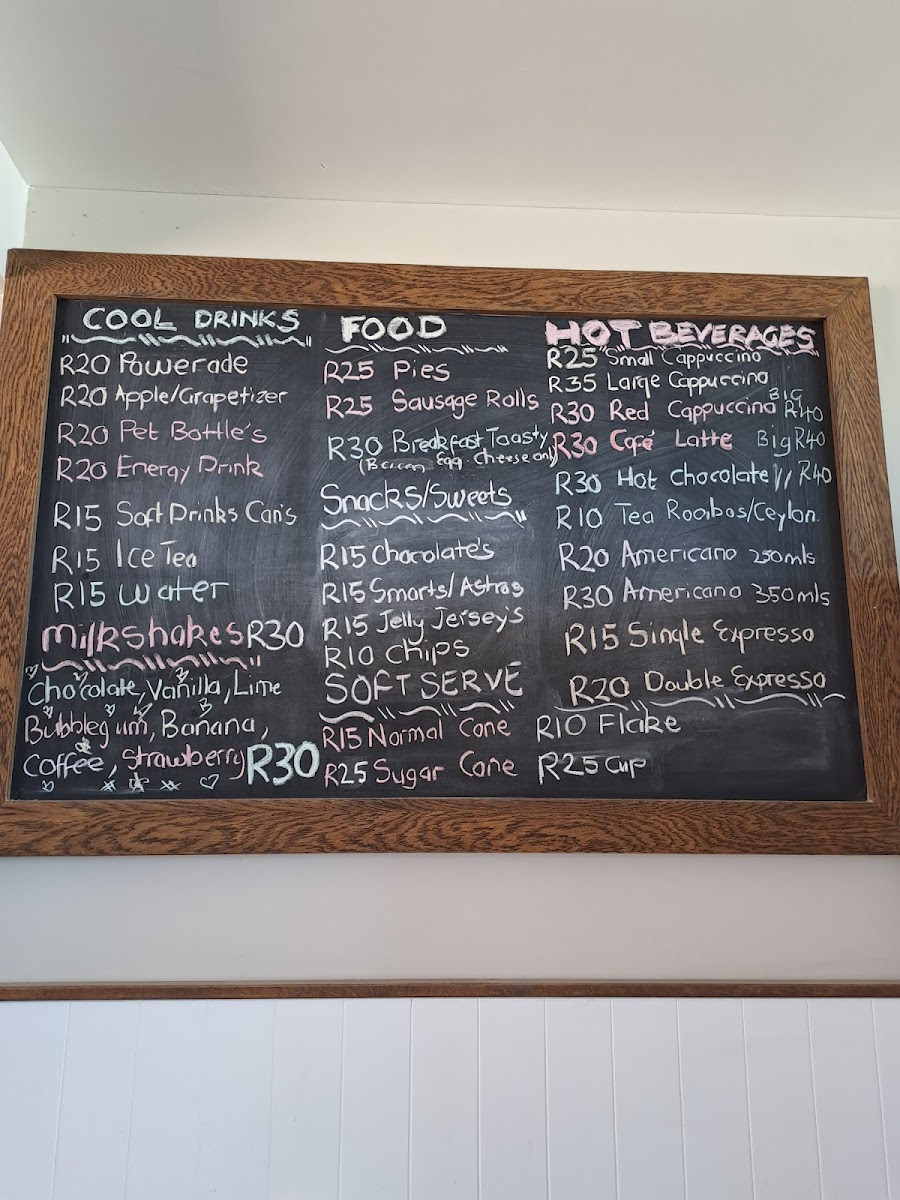 COOL DRINKS
R20 Powerade
R20 Apple/Grapetizer
R20 Pet Bottle's
R20 Energy Drink
R15 Soft Drinks Can's
R15 Ice Tea
R15 Water
Milkshakes R30
Chocolate, Vanilla, Lime
Bubblegum, Banana,
Coffee, Strawberry R30
FOOD
R25 Pies
R25 Sausage Rolls
R30 Breakfast Toasty
(Bacon Egg Cheese only)
Snacks/Sweets
R15 Chocolate's
R15 Smarts/Astros
R15 Jelly Jersey's
R10 Chips
SOFT SERVE
R15 Normal Cone
R25 Sugar Cone
HOT BEVERAGES
R25 Small Cappuccino
R35 Large Cappuccino
R30 Red Cappuccino BIG R40
R30 Café Latte Big R40
R30 Hot Chocolate // R40
R10 Tea Rooibos/Ceylon.
R20 Americano 250mls
R30 Americano 350mls
R15 Single Expresso
R20 Double Expresso
R10 Flake
R25 Cup